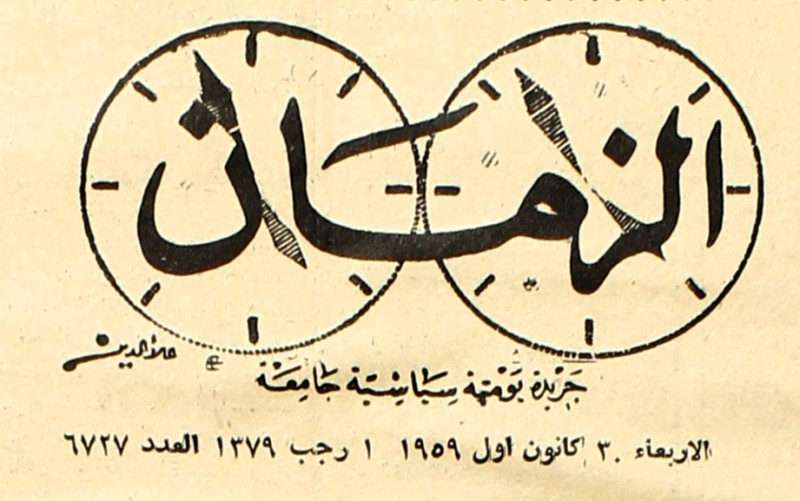 الزمان
علاء الدين
جريدة يومية سياسية جامعة
الاربعاء ٣٠ كانون اول ١٩٥٩ ١ رجب ١٣٧٩ العدد ٦٧٢٧